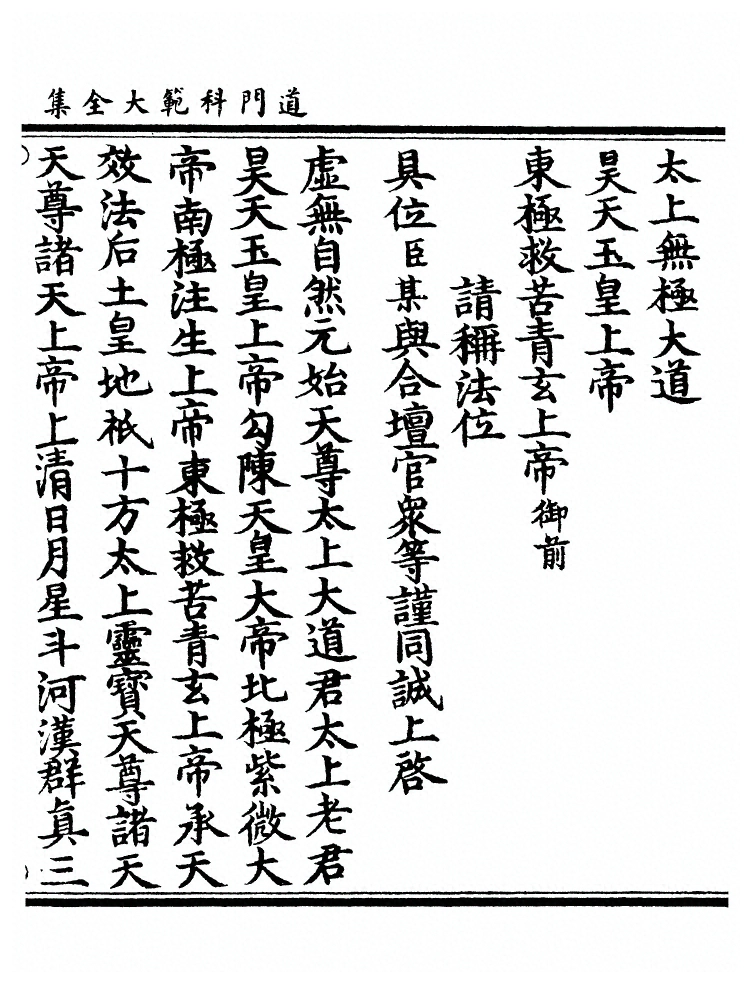 道門科範大全集
太上無極大道
昊天玉皇上帝
東極救苦青玄上帝御前
請稱法位
具位臣某與合壇官衆等謹同誠上啓
虛無自然元始天尊太上大道君太上老君
昊天玉皇上帝勾陳天皇大帝北極紫微大
帝南極注生上帝東極救苦青玄上帝承天
效法后土皇地祇十方太上靈寶天尊諸天
天尊諸天上帝上清日月星斗河漢群真三